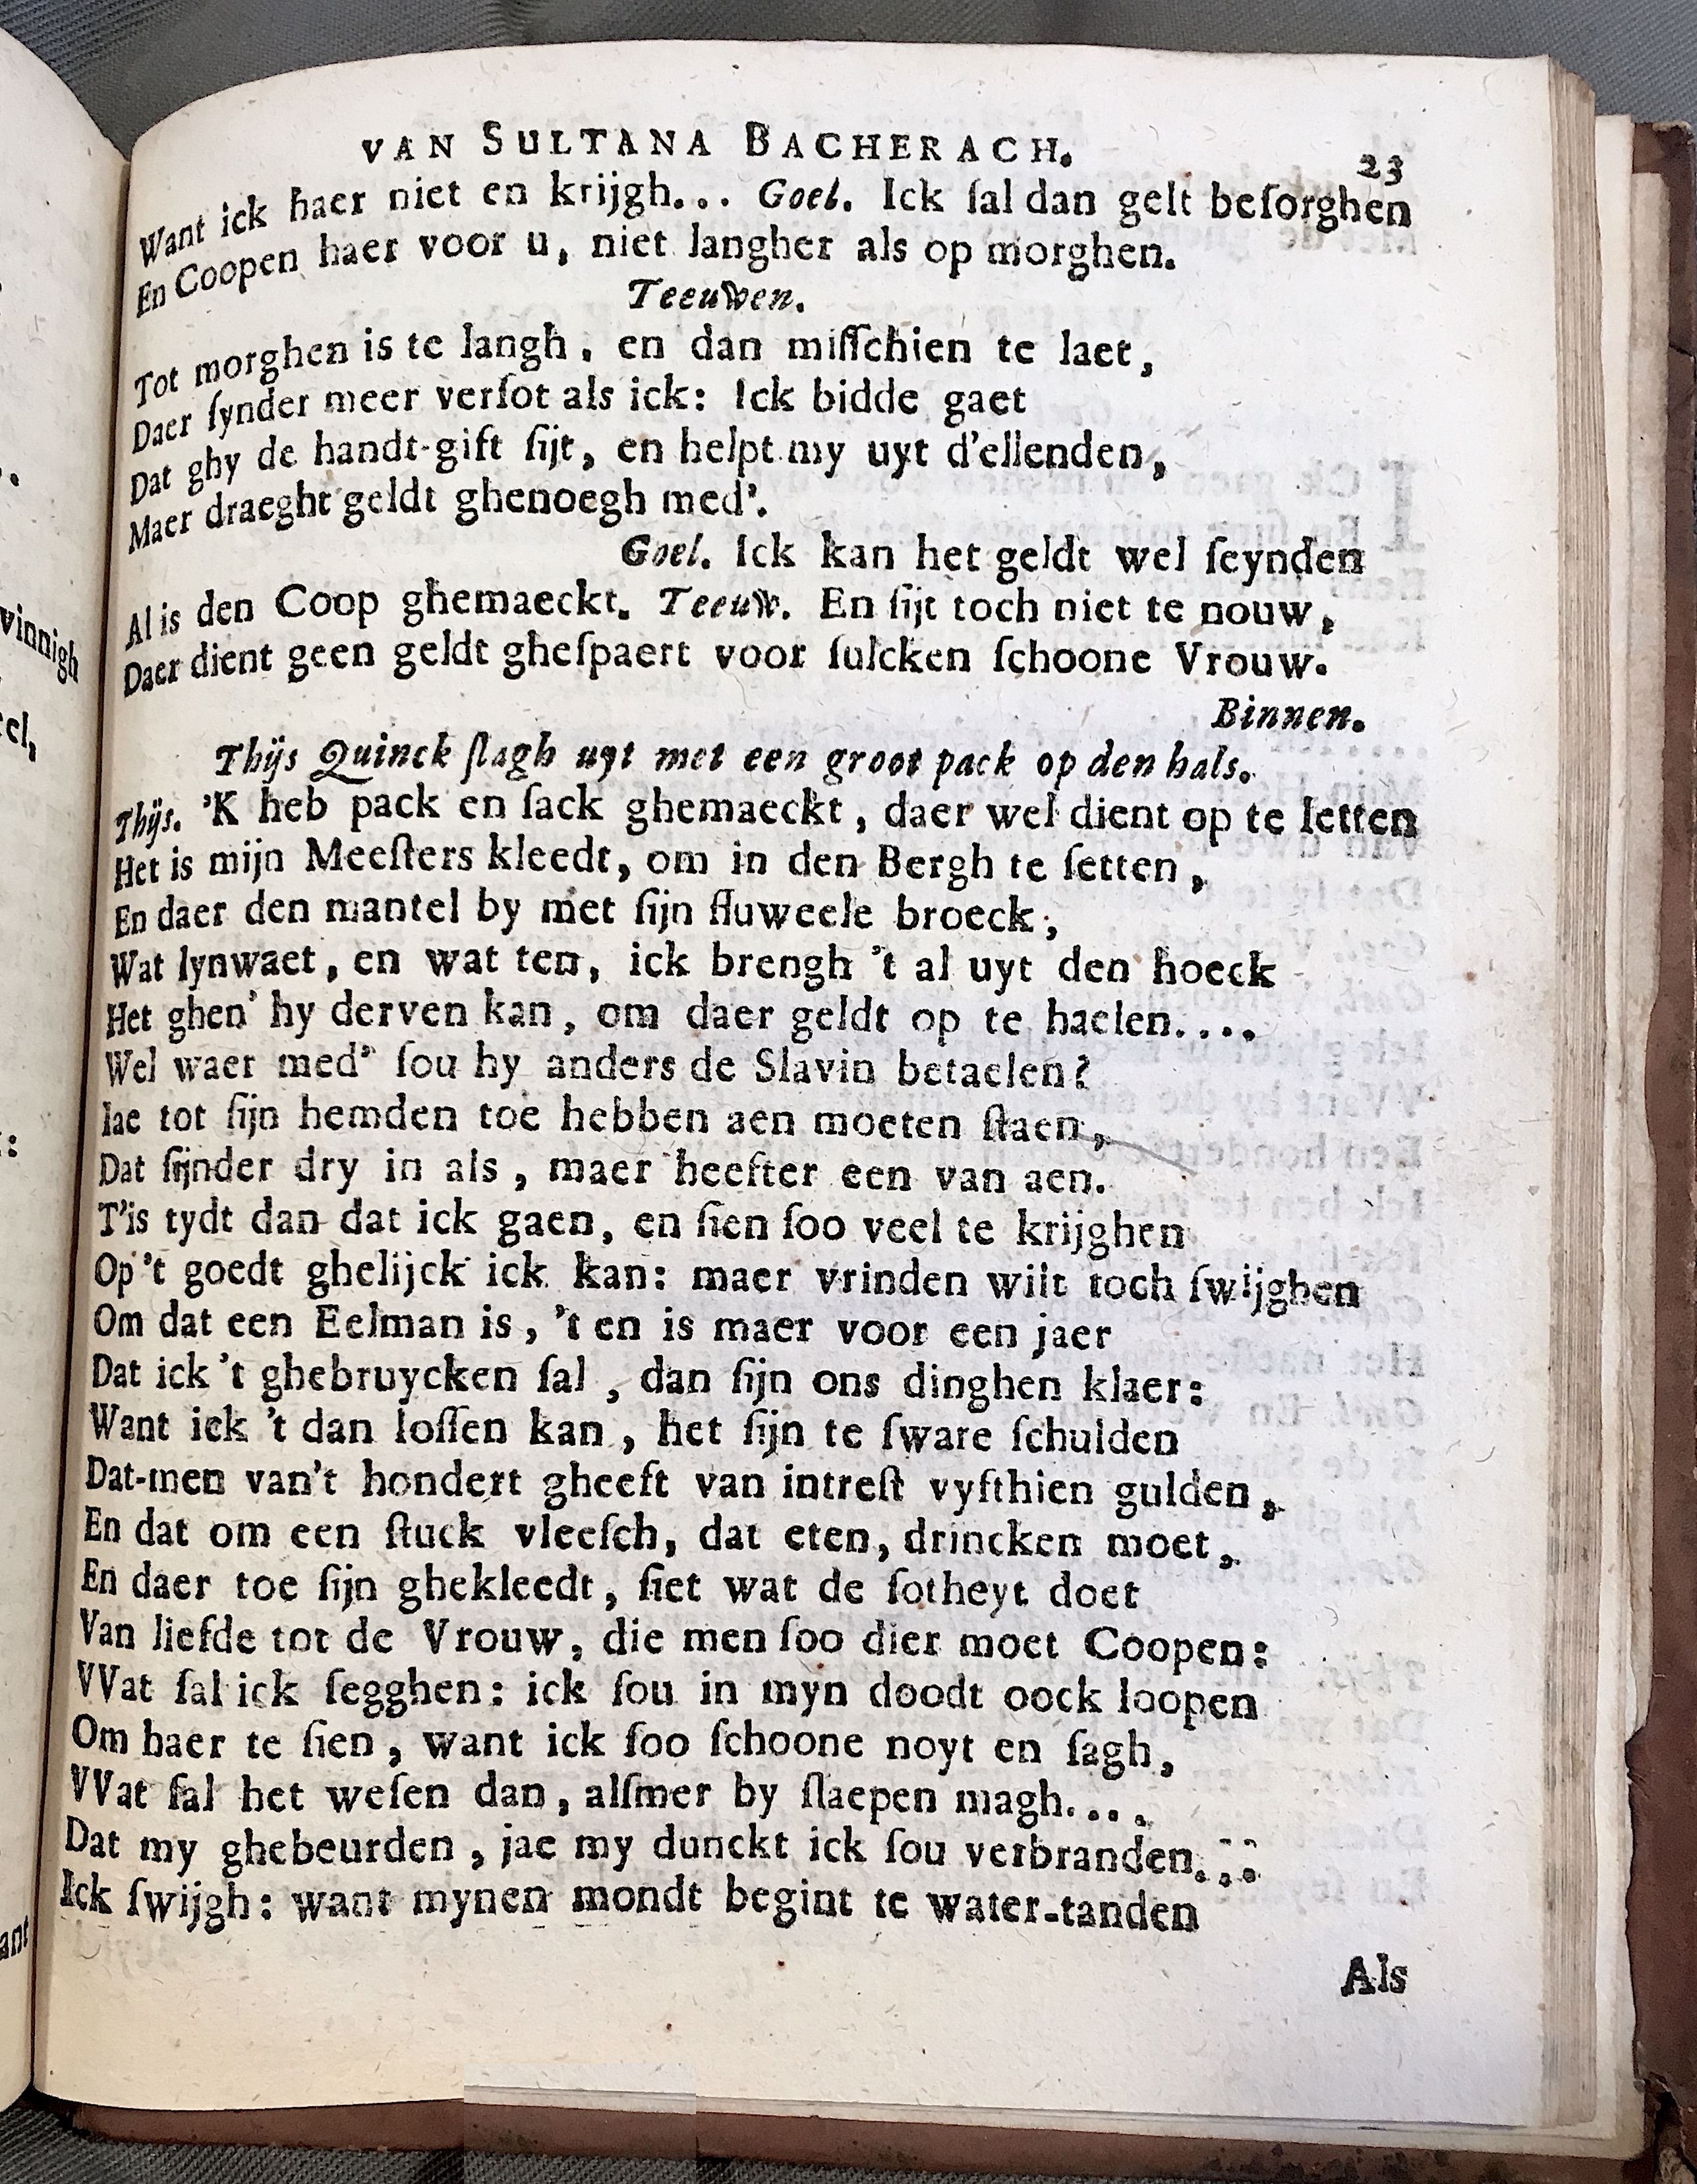 VAN SULTANA BACHERACH. 23
Want ick haer niet en krijgh... Goel. Ick ſal dan gelt beſorghen
En Coopen haer voor u, niet langher als op morghen.
Teeuwen.
Tot morghen is te langh, en dan miſſchien te laet,
Daer ſynder meer verſot als ick: Ick bidde gaet
Dat ghy de handt-gift ſijt, en helpt my uyt d'ellenden,
Maer draeght geldt ghenoegh med'.
Goel. Ick kan het geldt wel ſeynden
Al is den Coop ghemaeckt. Teeuw. En ſijt toch niet te nouw,
Daer dient geen geldt gheſpaert voor ſulcken ſchoone Vrouw.
Binnen.
Thijs Quinck ſlagh uyt met een groot pack op den hals.
Thijs. 'K heb pack en ſack ghemaeckt, daer wel dient op te letten
Het is mijn Meeſters kleedt, om in den Bergh te ſetten,
En daer den mantel by met ſijn fluweele broeck;
Wat lynwaet, en wat ten, ick brengh 't al uyt den hoeck
Het ghen' hy derven kan, om daer geldt op te haelen....
Wel waer med' ſou hy anders de Slavin betaelen?
Iae tot ſijn hemden toe hebben aen moeten ſtaen,
Dat ſijnder dry in als, maer heefter een van aen.
T'is tydt dan dat ick gaen, en ſien ſoo veel te krijghen
Op 't goedt ghelijck ick kan: maer vrinden wilt toch ſwijghen
Om dat een Eelman is, 't en is maer voor een jaer
Dat ick 't ghebruycken ſal, dan ſijn ons dinghen klaer:
Want ick 't dan loſſen kan, het ſijn te ſware ſchulden
Dat-men van't hondert gheeft van intreſt vyfthien gulden,
En dat om een ſtuck vleeſch, dat eten, drincken moet,
En daer toe ſijn ghekleedt, ſiet wat de ſotheyt doet
Van liefde tot de Vrouw, die men ſoo dier moet Coopen:
VVat ſal ick ſegghen: ick ſou in myn doodt oock loopen
Om haer te ſien, want ick ſoo ſchoone noyt en ſagh,
VVat ſal het weſen dan, alſmer by ſlaepen magh....
Dat my ghebeurden, jae my dunckt ick ſou verbranden...
Ick ſwijgh: want mynen mondt begint te water-tanden
Als
vinnigh